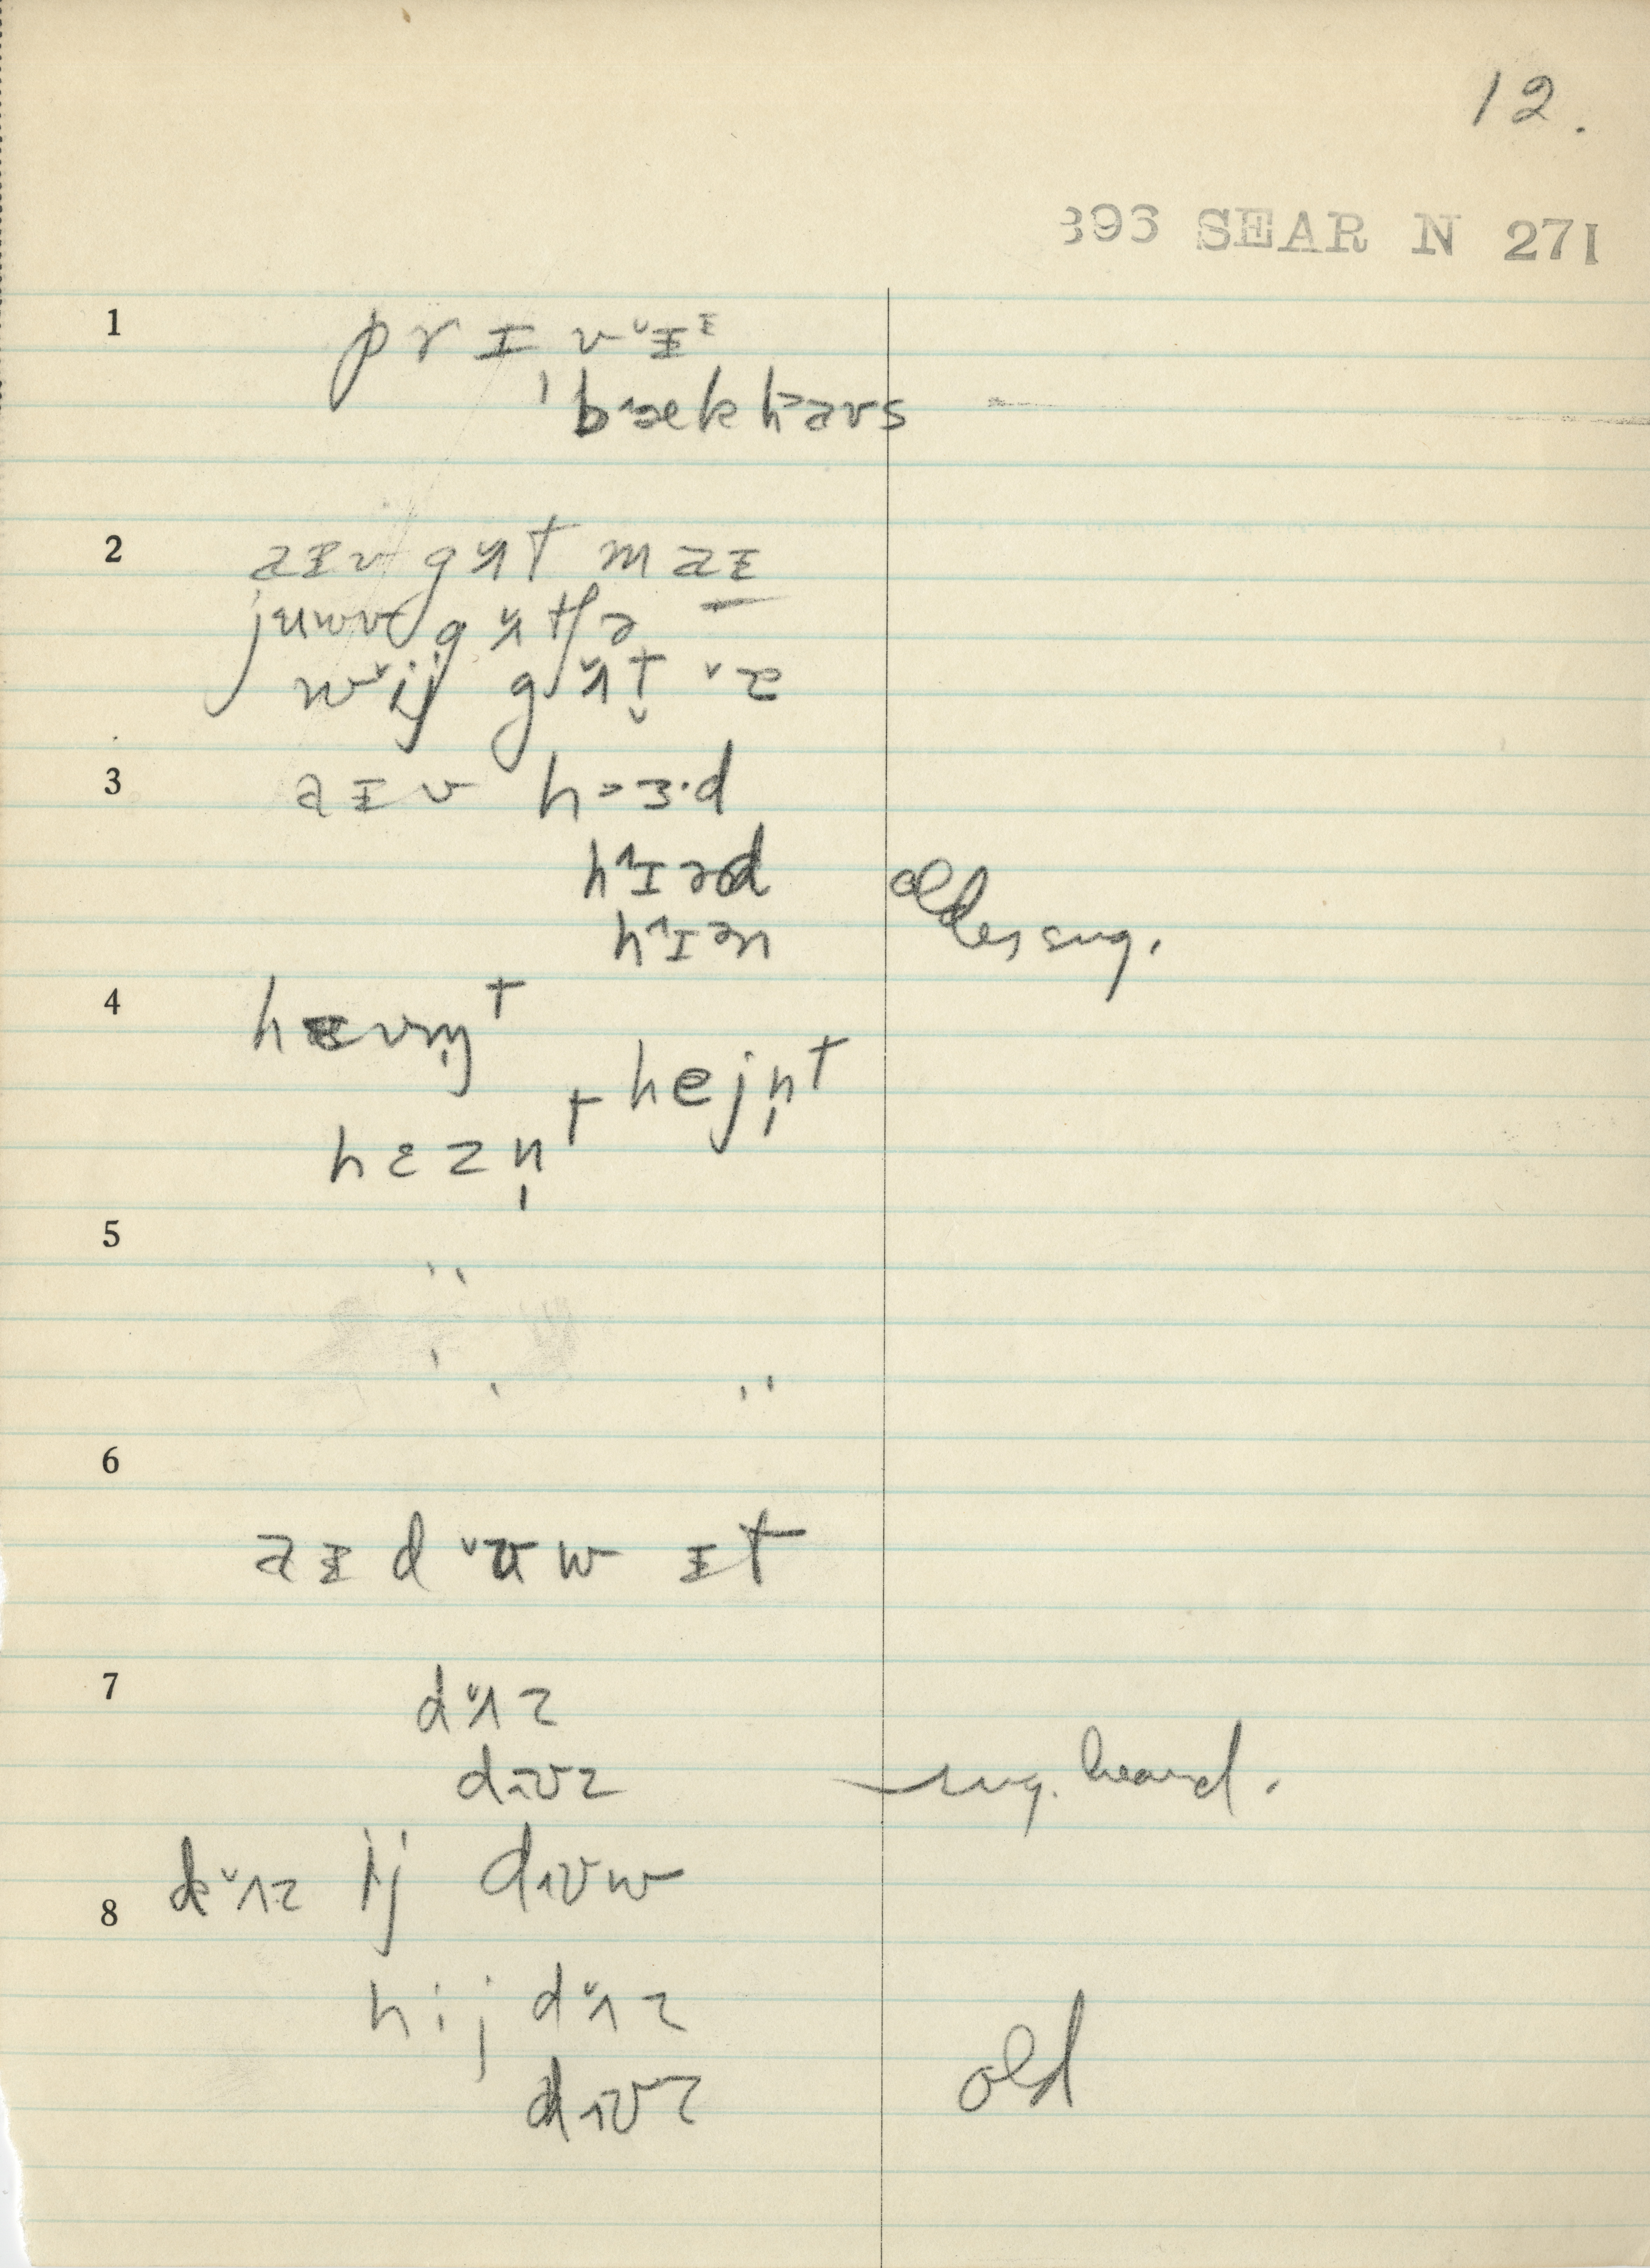 12.
393 SEAR N 271
1 prɪv˅ɪᶦ
ˈb˄æk h˃aʊs
2 aɪv g˅ʌt maɪ
juwv g˅ʌtʃə
w˅ij g˅ʌt̬ ˅ɪ
3 aɪv h˃ɜ·d
h˄ɪəd older sug.
h˄ɪən
4 hævn̩t
hejn̩t
hɛzn̩t
5
6
aɪ d˅ʊw ɪt
7 d˅ʌz
d˄ʊz sug. heard.
d˅ʌz ij d˄ʊw
8
hij d˅ʌz
d˄ʊz old